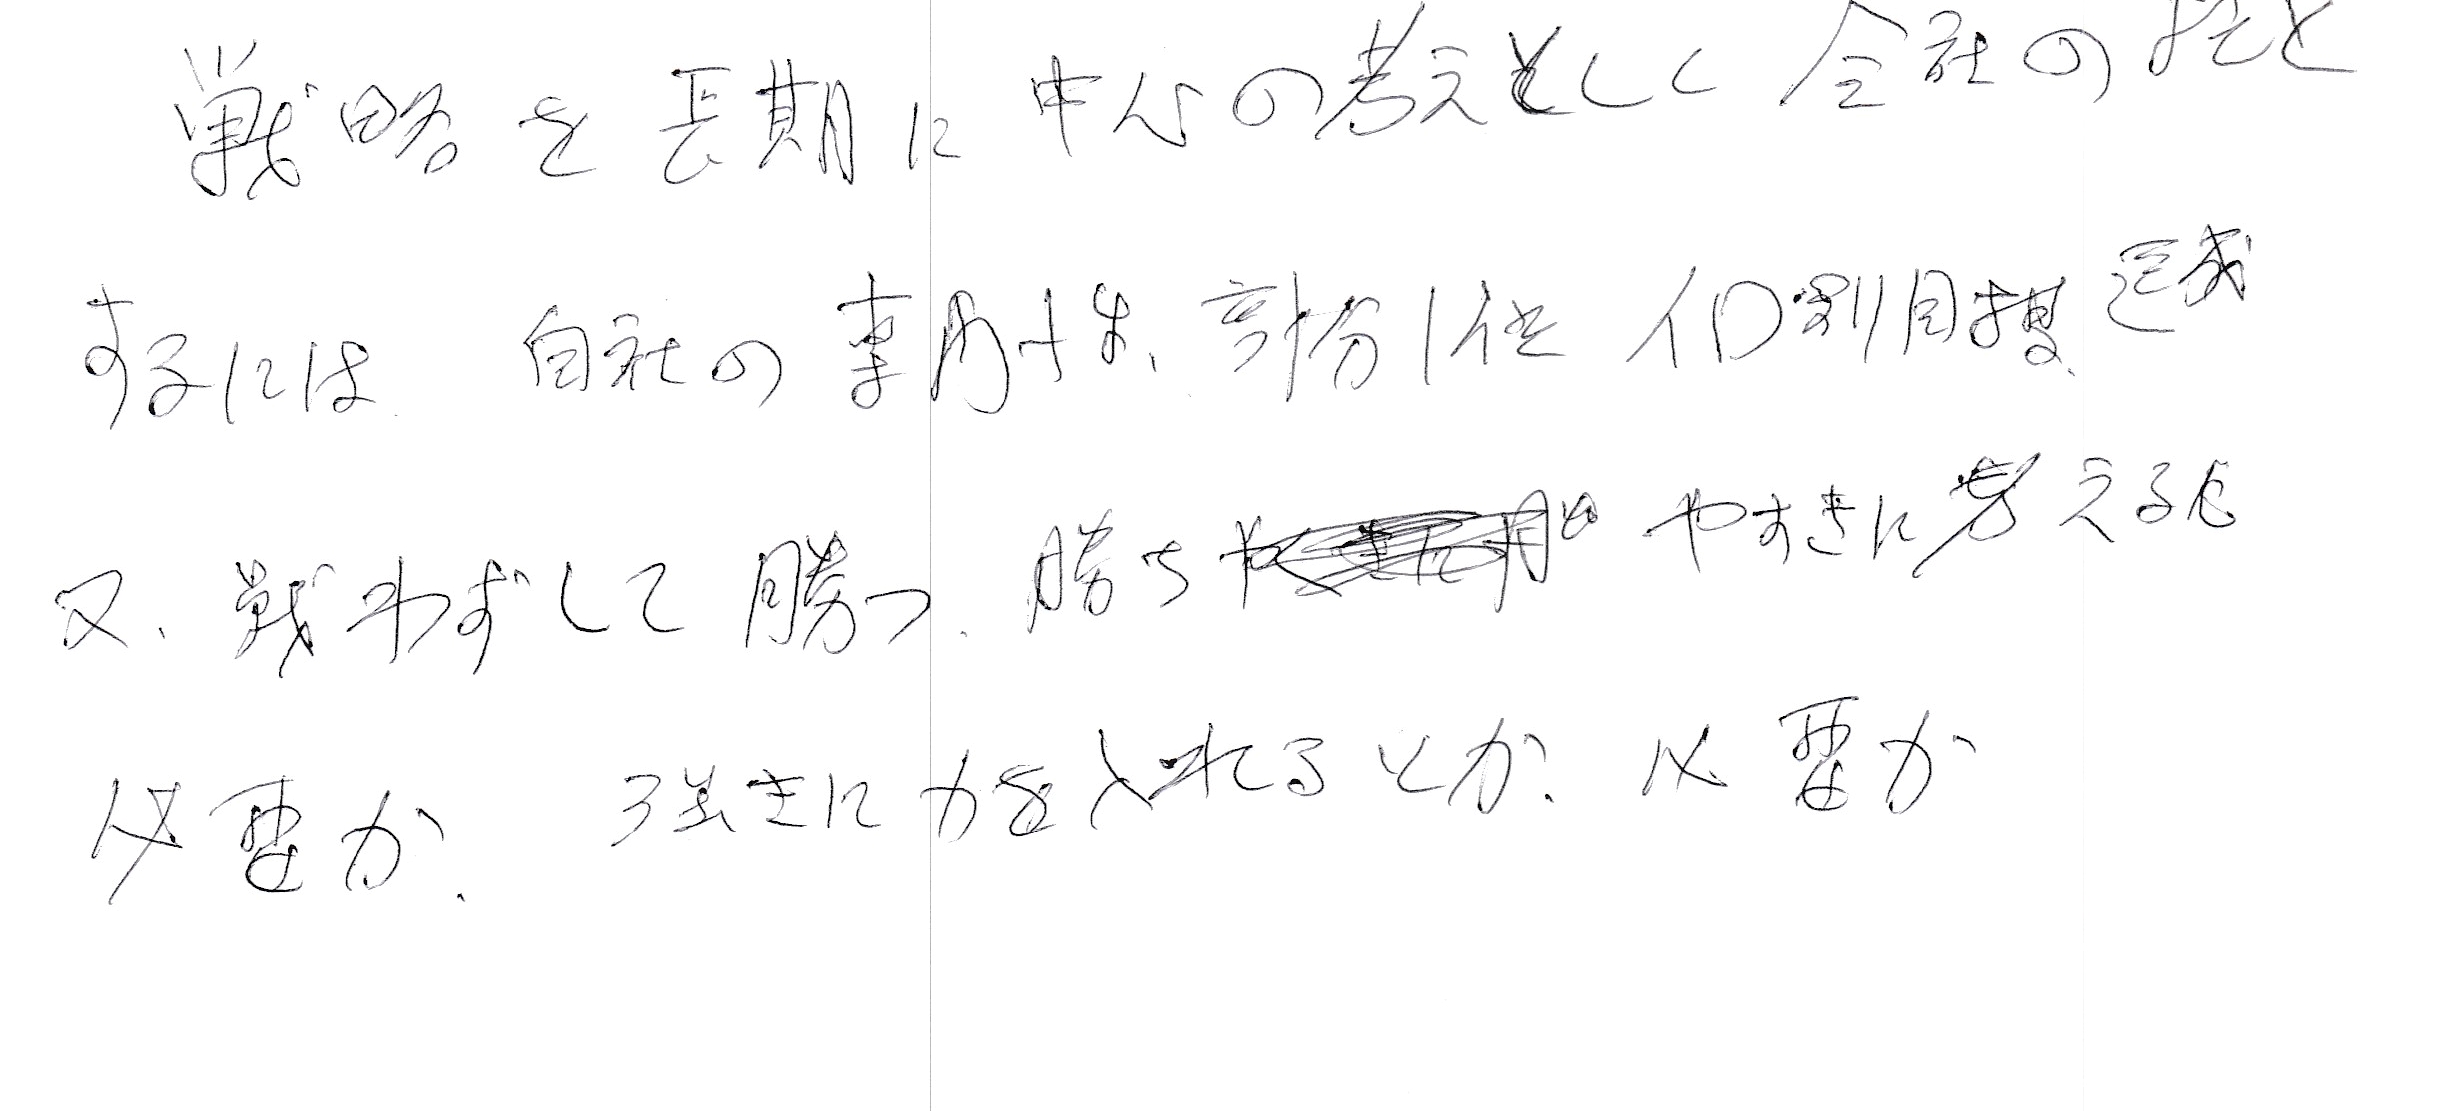 戦略を長期に中心の考えとして会社の柱と
するには 自社の専門性、部分1位 個別目標達成
又、戦わずして勝つ、勝ちやすきに考える
必要か、 弱きに力を入れるとか、必要か